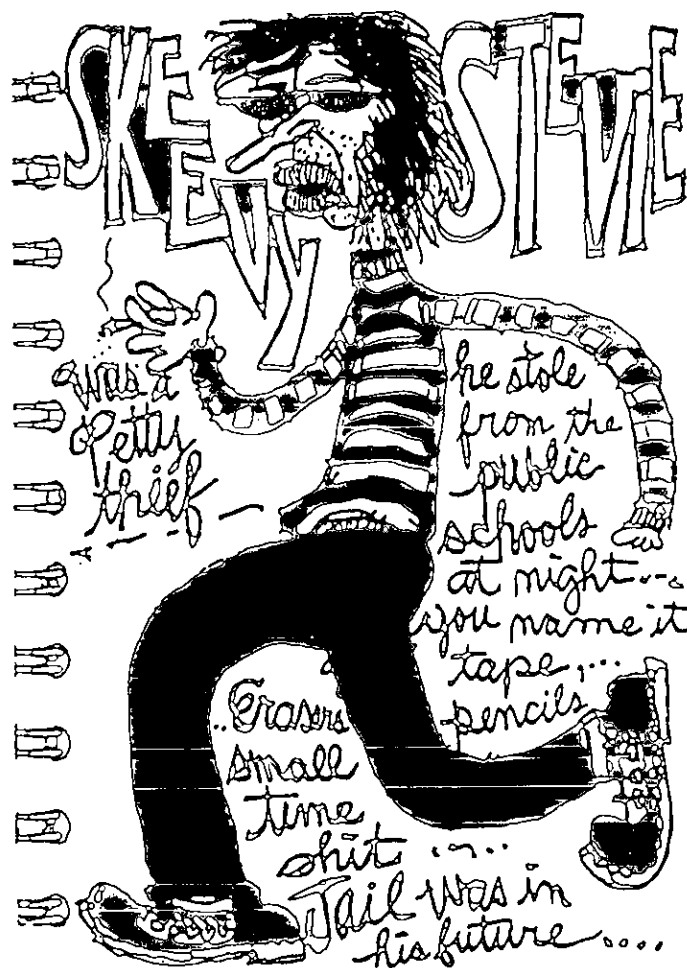 SKEEVY STEVIE
was a
Petty
thief
he stole
from the
public
schools
at night...
you name it
tape ....
pencils
..Erasers
small
time
shit .....
Jail was in
his future ....